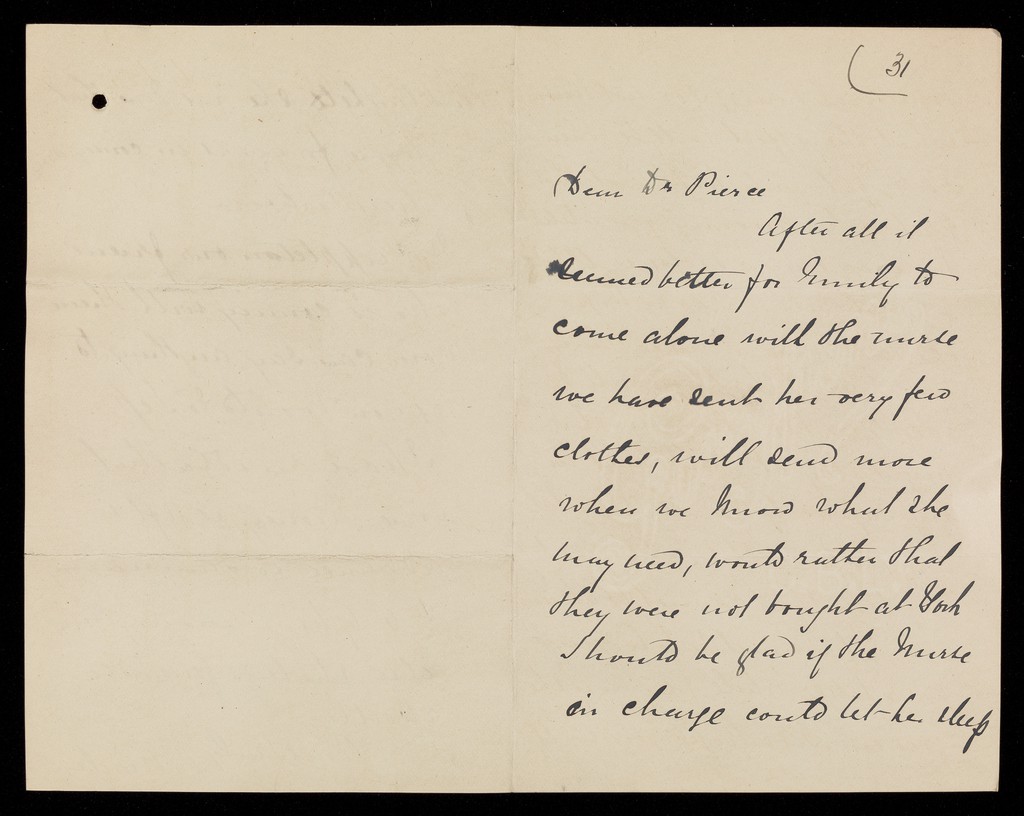 31
Dear Dr Pierce
After all it
seemed better for Emily to
come alone with the nurse
we have sent her very few
clothes, will send more
when we know what she
may need, would rather that
they were not bought at York
Should be glad if the Nurse
in charge could let her sleep